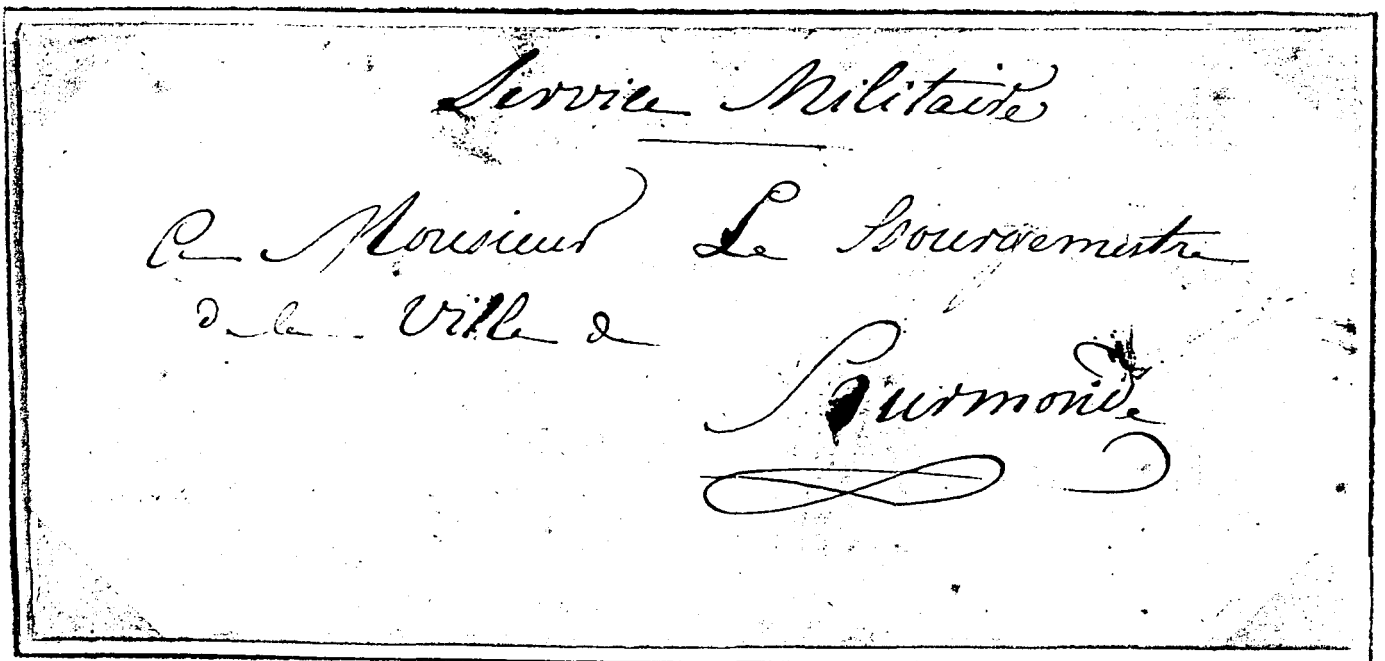 Service Militaire
A Monsieur Le Bourgemestre
de la Ville de
Rurmonde